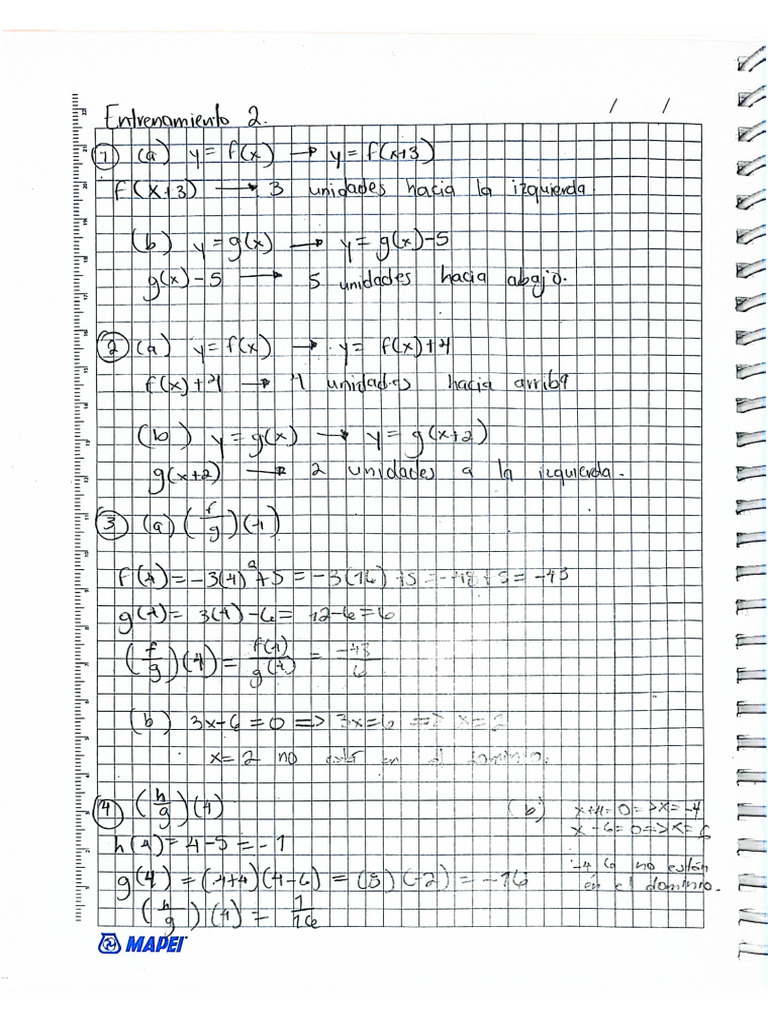 / /
Entrenamiento 2.
① (a) y = f(x) → y = f(x+3)
f(x+3) → 3 unidades hacia la izquierda
(b) y = g(x) → y = g(x)-5
g(x)-5 → 5 unidades hacia abajo.
② (a) y = f(x) → y = f(x)+4
f(x)+4 → 4 unidades hacia arriba
(b) y = g(x) → y = g(x+2)
g(x+2) → 2 unidades a la izquierda.
③ (a) (f/g)(4)
f(4) = -3(4)²+5 = -3(16)+5 = -48+5 = -43
g(4) = 3(4)-6 = 12-6 = 6
(f/g)(4) = f(4)/g(4) = -43/6
(b) 3x-6=0 => 3x=6 => x=2
x=2 no está en el dominio.
④ (h/g)(4)
h(4) = 4-5 = -1
g(4) = (4+4)(4-6) = (8)(-2) = -16
(h/g)(4) = 1/16
(b) x+4=0 => x=-4
x-6=0 => x=6
-4 6 no están
en el dominio.
MAPEI